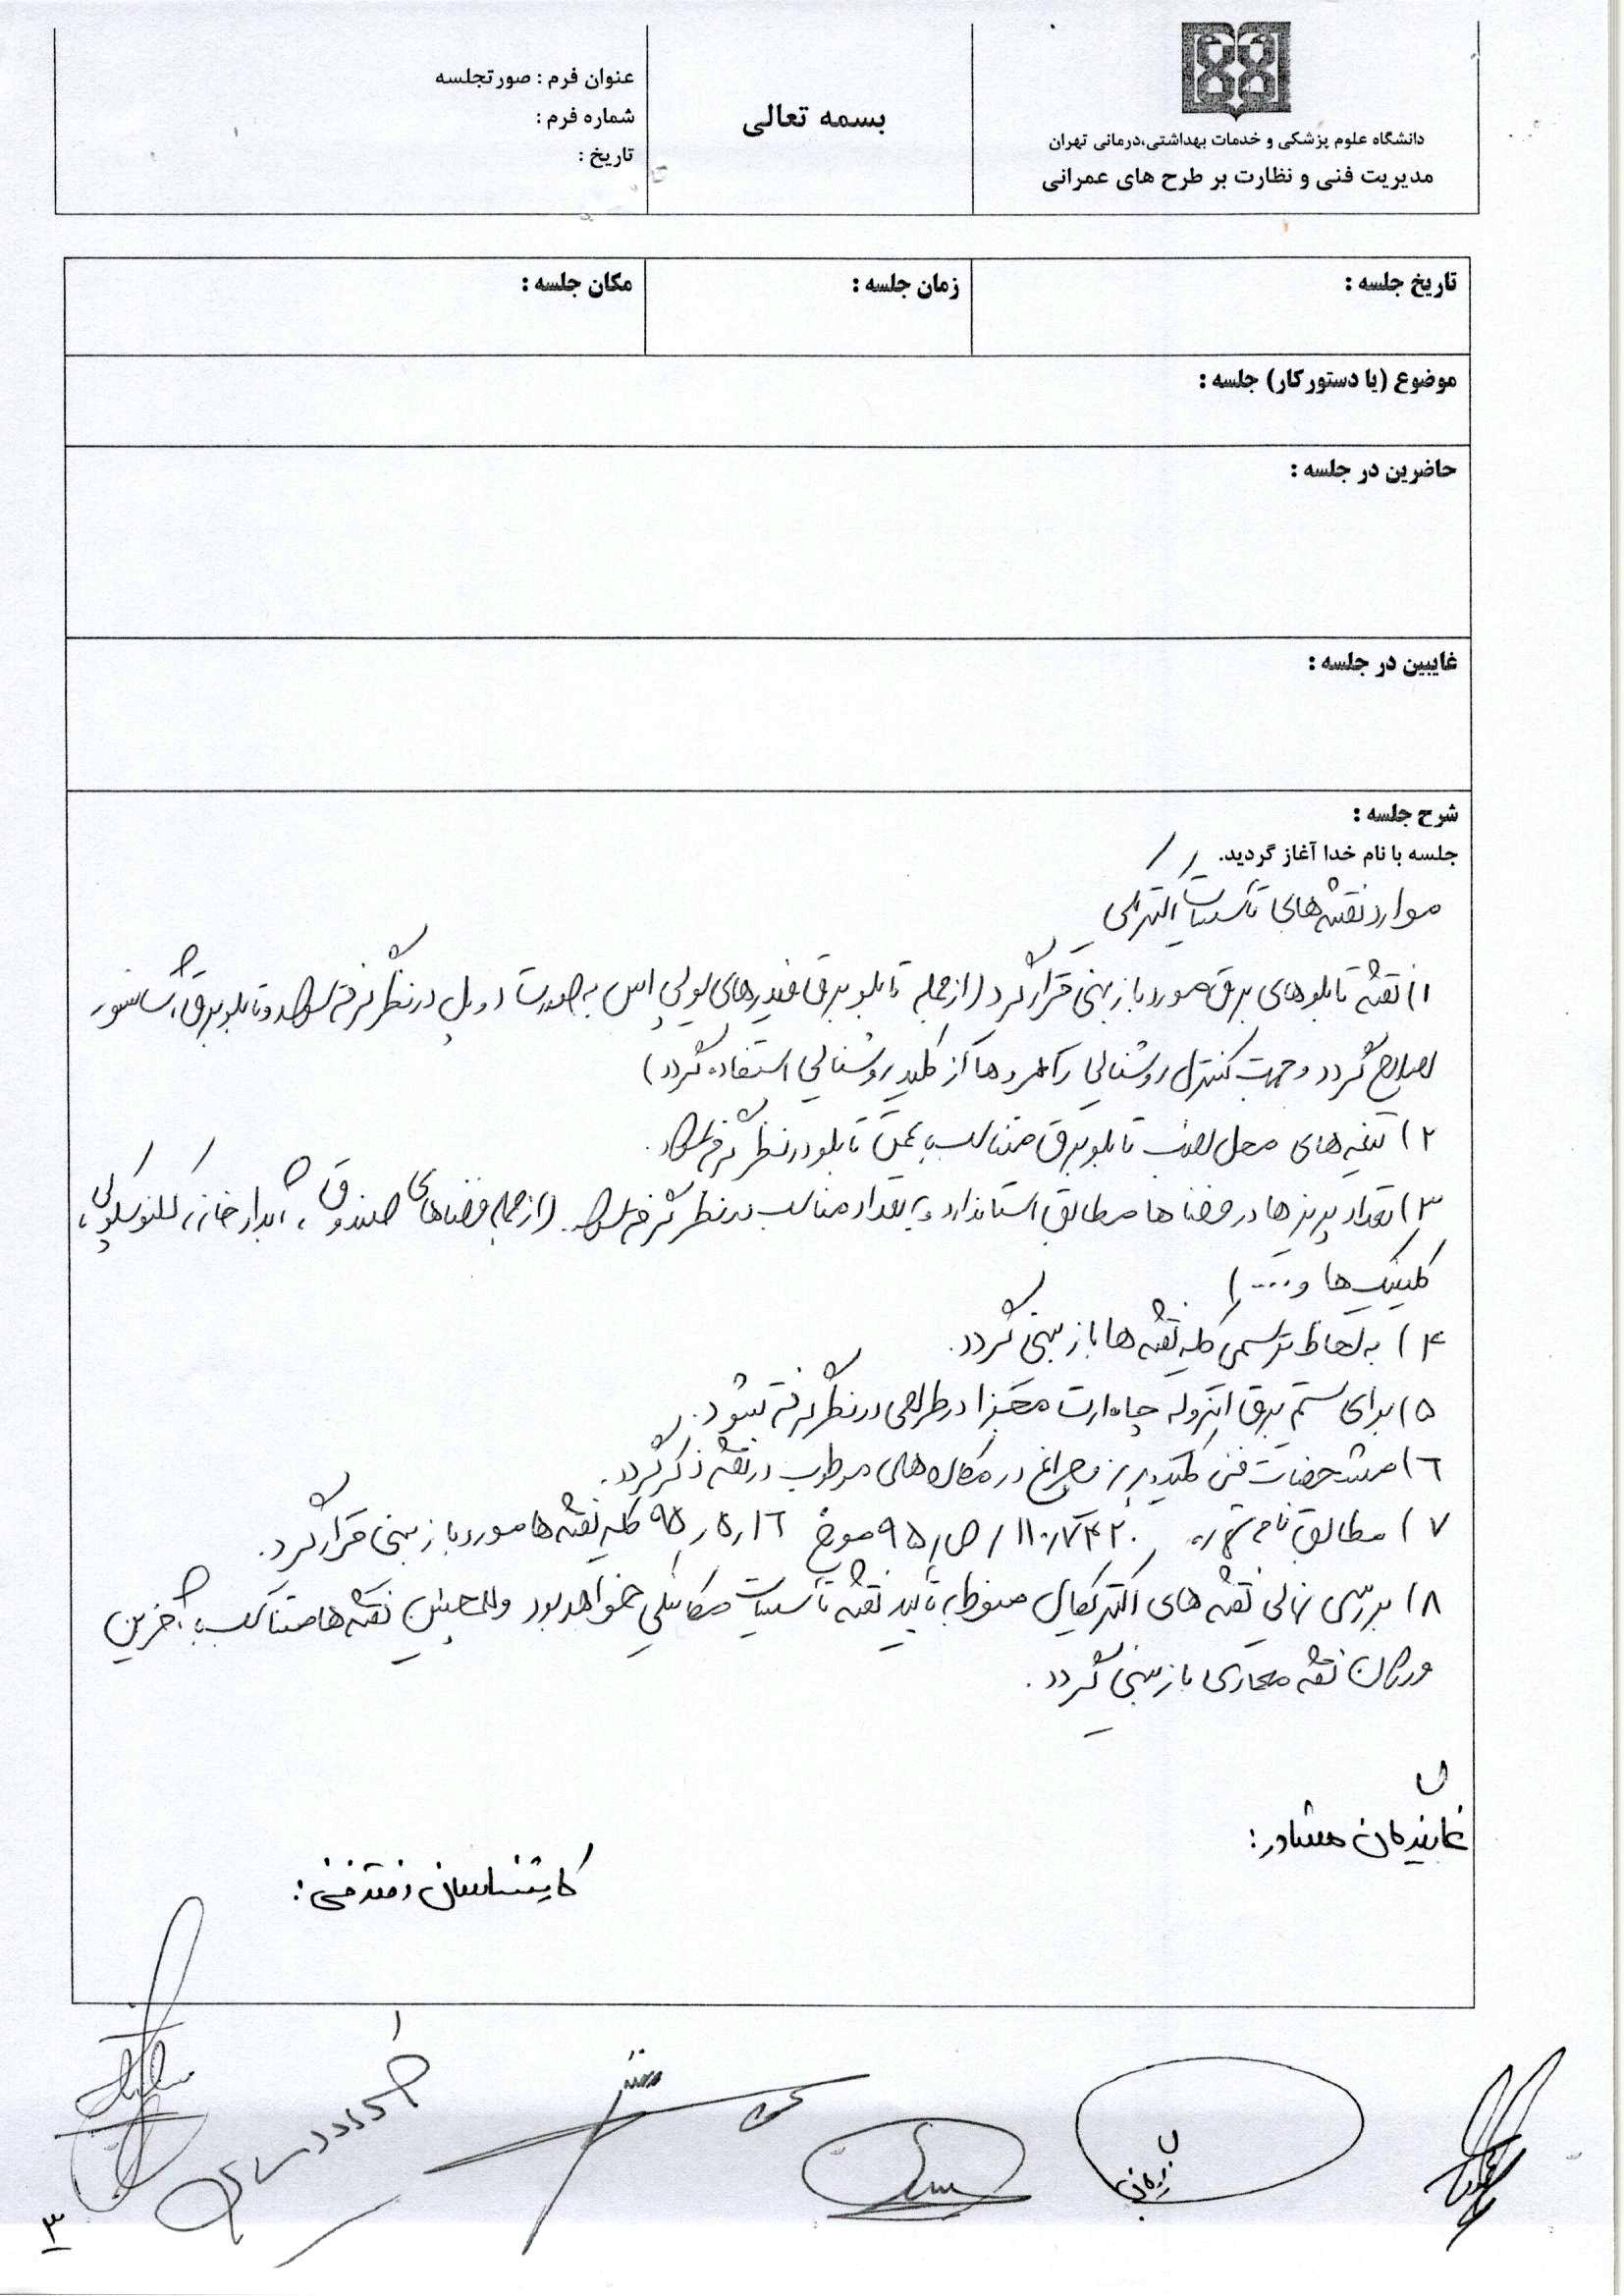 دانشگاه علوم پزشکی و خدمات بهداشتی،درمانی تهران
مدیریت فنی و نظارت بر طرح های عمرانی
بسمه تعالی
عنوان فرم : صورتجلسه
شماره فرم :
تاریخ :
تاریخ جلسه :
زمان جلسه :
مکان جلسه :
موضوع (یا دستورکار) جلسه :
حاضرین در جلسه :
غایبین در جلسه :
شرح جلسه :
جلسه با نام خدا آغاز گردید.
موارد نقشه های تأسیسات الکتریکی
۱) نقشه تابلوهای برق مورد بازبینی قرار گیرد (از جمله تابلو برق فیدرهای یو پی اس به صورت دوبل در نظر گرفته شود و تابلو برق آسانسور
اصلاح گردد و جهت کنترل روشنایی راهروها از کلید روشنایی استفاده گردد)
۲) تیغه های محل نصب تابلو برق متناسب با عمق تابلو در نظر گرفته شود.
۳) تعداد پریزها در فضاها مطابق استاندارد و به تعداد مناسب در نظر گرفته شود. (از جمله فضاهای صندوق ، آبدارخانه ،
کلینیک ها و .... )
۴) به لحاظ ترسیمی کلیه نقشه ها بازبینی گردد.
۵) برای سیستم برق ایزوله چاه ارت مجزا در طراحی در نظر گرفته شود.
۶) مشخصات فنی کلید و پریز و چراغ در مکان های مرطوب در نقشه ذکر گردد.
۷) مطابق نامه شماره ۱۱۰/۷۴۲۰/ص/۹۵ مورخ ۹۵/۵/۱۶ کلیه نقشه ها مورد بازبینی قرار گیرد.
۸) بررسی نهایی نقشه های الکتریکال منوط به تایید نقشه تأسیسات مکانیکی خواهد بود و همچنین نقشه ها متناسب با آخرین
ورژن نقشه معماری بازبینی گردد.
نمایندگان مشاور:
کارشناسان دفتر فنی :
۳